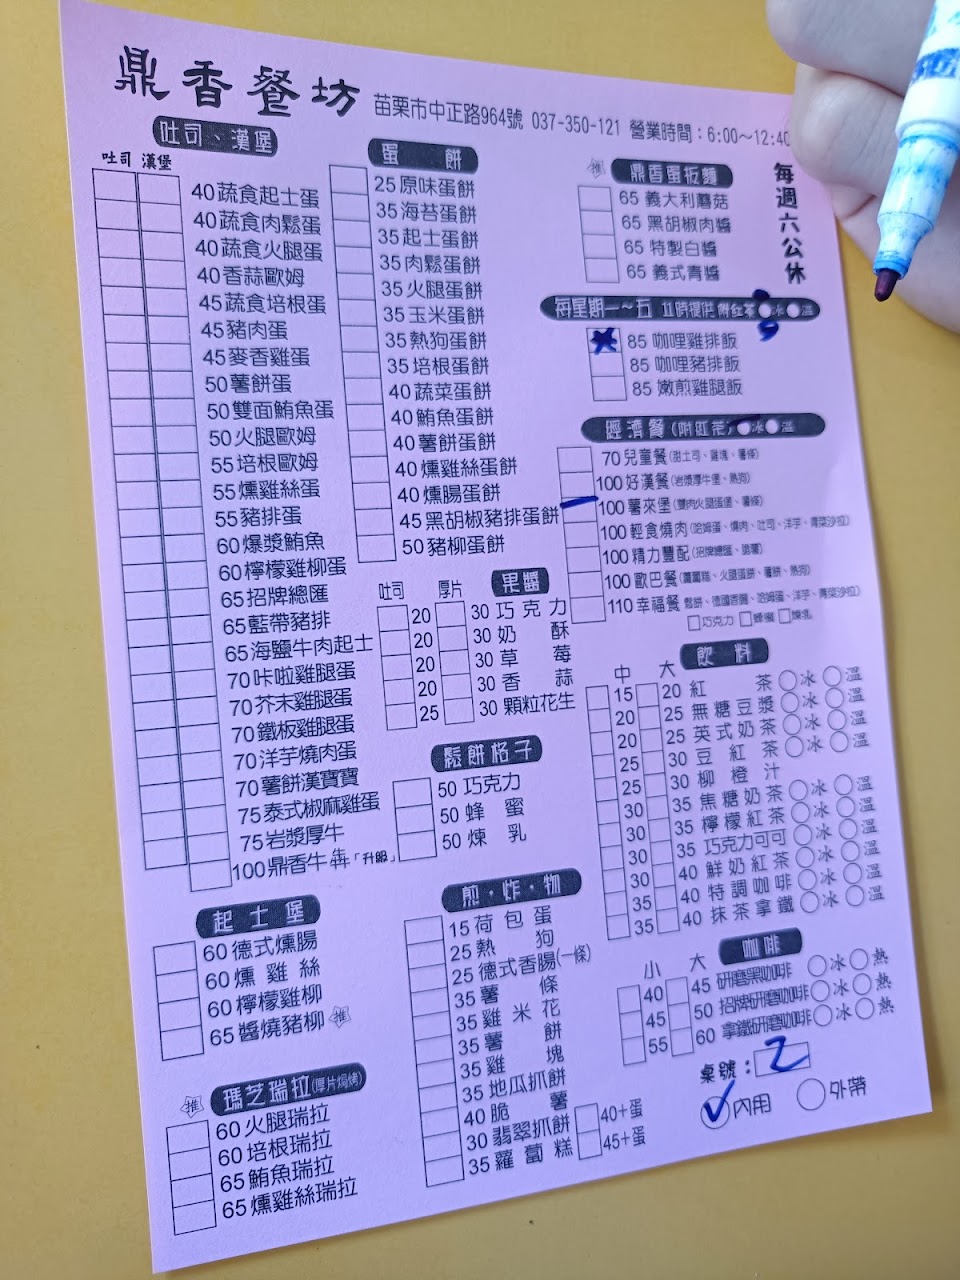 鼎香餐坊 苗栗市中正路964號 037-350-121 營業時間：6:00～12:40
每週六公休
吐司、漢堡
吐司 漢堡
40蔬食起士蛋
40蔬食肉鬆蛋
40蔬食火腿蛋
40香蒜歐姆
45蔬食培根蛋
45豬肉蛋
45麥香雞蛋
50薯餅蛋
50雙面鮪魚蛋
50火腿歐姆
55培根歐姆
55燻雞絲蛋
55豬排蛋
60爆漿鮪魚
60檸檬雞柳蛋
65招牌總匯
65藍帶豬排
65海鹽牛肉起士
70咔啦雞腿蛋
70芥末雞腿蛋
70鐵板雞腿蛋
70洋芋燒肉蛋
70薯餅漢寶寶
75泰式椒麻雞蛋
75岩漿厚牛
100鼎香牛犇「升級」
起士堡
60德式燻腸
60燻雞絲
60檸檬雞柳
65醬燒豬柳 推
推 瑪芝瑞拉(厚片焗烤)
60火腿瑞拉
60培根瑞拉
65鮪魚瑞拉
65燻雞絲瑞拉
蛋餅
25原味蛋餅
35海苔蛋餅
35起士蛋餅
35肉鬆蛋餅
35火腿蛋餅
35玉米蛋餅
35熱狗蛋餅
35培根蛋餅
40蔬菜蛋餅
40鮪魚蛋餅
40薯餅蛋餅
40燻雞絲蛋餅
40燻腸蛋餅
45黑胡椒豬排蛋餅
50豬柳蛋餅
果醬
吐司 厚片
20 30巧克力
20 30奶酥
20 30草莓
20 30香蒜
25 30顆粒花生
鬆餅格子
50巧克力
50蜂蜜
50煉乳
煎・炸・物
15荷包蛋
25熱狗
25德式香腸(一條)
35薯條
35雞米花
35薯餅
35雞塊
35地瓜抓餅
40脆薯
30翡翠抓餅 40+蛋
35蘿蔔糕 45+蛋
推 鼎香蛋板麵
65義大利蘑菇
65黑胡椒肉醬
65特製白醬
65義式青醬
每星期一～五 11時提供 附紅茶 冰 溫
85咖哩雞排飯
85咖哩豬排飯
85嫩煎雞腿飯
經濟餐(附紅茶) 冰 溫
70兒童餐(甜土司、雞塊、薯條)
100好漢餐(岩漿厚牛堡、熱狗)
100薯來堡(雙肉火腿蛋堡、薯條)
100輕食燒肉(哈姆蛋、燒肉、吐司、洋芋、青菜沙拉)
100精力豐配(招牌總匯、脆薯)
100歐巴餐(蘿蔔糕、火腿蛋餅、薯餅、熱狗)
110幸福餐(鬆餅、德國香腸、哈姆蛋、洋芋、青菜沙拉)
巧克力 蜂蜜 煉乳
飲料
中 大
15 20紅茶 冰 溫
20 25無糖豆漿 冰 溫
20 25英式奶茶 冰 溫
25 30豆紅茶 冰 溫
25 30柳橙汁
30 35焦糖奶茶 冰 溫
30 35檸檬紅茶 冰 溫
30 35巧克力可可 冰 溫
30 40鮮奶紅茶 冰 溫
35 40特調咖啡 冰 溫
35 40抹茶拿鐵 冰 溫
咖啡
小 大
40 45研磨黑咖啡 冰 熱
45 50招牌研磨咖啡 冰 熱
55 60拿鐵研磨咖啡 冰 熱
桌號：2
內用 外帶